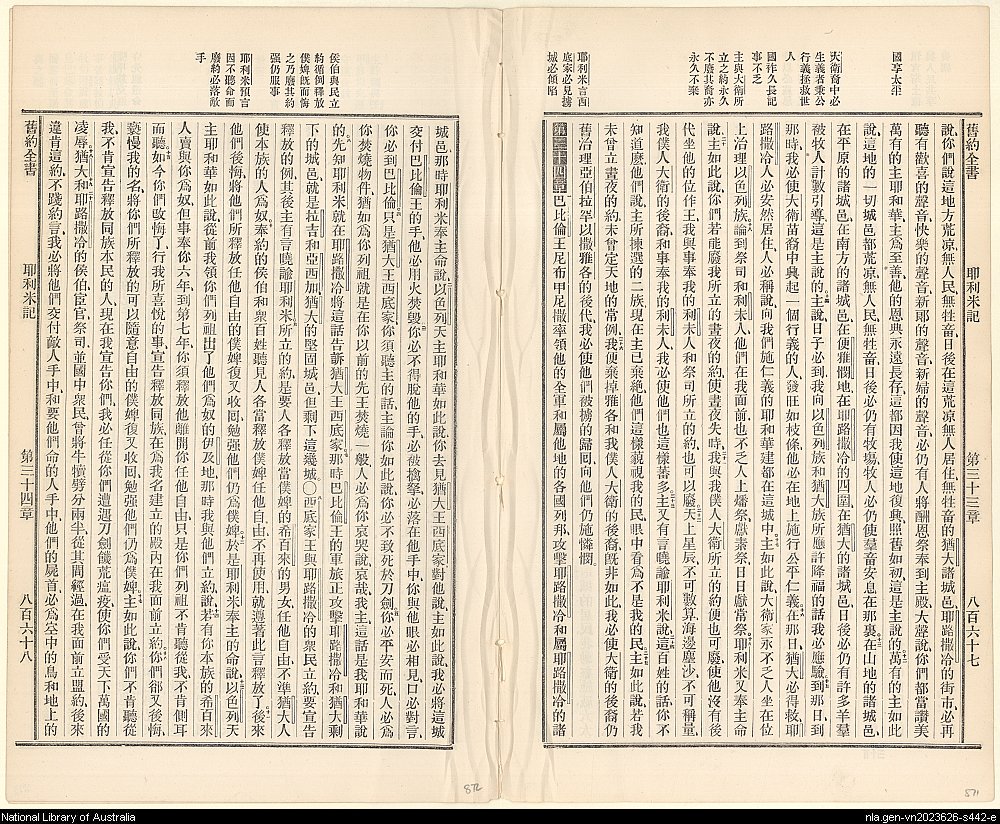 舊約全書
耶利米記
第三十三章
八百六十七
國享太平
大衛裔中必
生義者秉公
行義拯救世
人
國祚久長記
事不乏
主與大衛所
立之約永久
不廢其裔亦
永久不棄
耶利米言西
底家必見擄
城必傾陷
說、你們說這地方荒涼無人民、無牲畜、日後在這荒涼無人居住無牲畜的猶大諸城邑、耶路撒冷的街市、必再
聽有歡喜的聲音、快樂的聲音、新郎的聲音、新婦的聲音、必仍有人將酬恩祭奉到主殿、大聲說、你們都當讚美
萬有的主耶和華、主為至善、他的恩典永遠長存、這都因我使這地復興、照舊如初、這是主說的、萬有的主如此
說、這地的一切城邑、都荒涼、無人民、無牲畜、日後必仍有牧場、牧人必仍使羣畜安息在那裏、在山地的諸城邑、
在平原的諸城邑、在南方的諸城邑、在便雅憫地、在耶路撒冷的四圍、在猶大的諸城邑、日後必仍有許多羊羣
被牧人計數引導、這是主說的、主說、日子必到、我向以色列族和猶大族所應許降福的話、我必應驗、到那日、到
那時、我必使大衛苗裔中興起一個行義的人、發旺如枝條、他必在地上施行公平仁義、在那日、猶大必得救、耶
路撒冷人必安然居住、人必稱說、向我們施仁義的耶和華建都在這城中、主如此說、大衛家永不乏人坐在位
上治理以色列族、論到祭司和利未人、他們在我面前也不乏人上燔祭、獻素祭、日日獻常祭、耶利米又奉主命
說、主如此說、你們若能廢我所立的晝夜的約、使晝夜失時、我與我僕人大衛所立的約便也可廢、使他沒有後
代坐他的位作王、我與事奉我的利未人和祭司所立的約、也可以廢、天上星辰、不可數算、海邊塵沙、不可稱量、
我僕人大衛的後裔和事奉我的利未人、我必使他們也這樣蕃多、主又有言曉諭耶利米說、這百姓的話、你不
知道麽、他們說、主所揀選的二族、現在主已棄絕、他們這樣藐視我的民、眼中看為不是我的民、主如此說、若我
未曾立晝夜的約、未曾定天地的當例、我便棄掉雅各和我僕人大衛的後裔、旣非如此、我必使大衛的後裔仍
舊治理亞伯拉罕以撒雅各的後代、我必使他們被擄的歸囘、向他們仍施憐憫、
第三十四章巴比倫王尼布甲尼撒率領他的全軍、和屬他地的各國列邦、攻擊耶路撒冷和屬耶路撒冷的諸
侯伯與民立
約循例釋放
僕婢旣而悔
之乃廢其約
强仍服事
耶利米預言
因不聽命而
廢約必落敵
手
城邑、那時耶利米奉主命說、以色列天主耶和華如此說、你去見猶大王西底家對他說、主如此說、我必將這城
交付巴比倫王的手、他必用火焚燬、你必不得脫他的手、必被擒拏、必落在他手中、你與他眼必相見、口必對言、
你必到巴比倫、只是猶大王西底家、你須聽主的話、主論你如此說、你必不致死於刀劍、你必平安而死、人必為
你焚燒物件、猶如為你列祖、就是在你以前的先王焚燒一般、人必為你哀哭說、哀哉我主、這話是我耶和華說
的、先知耶利米就在耶路撒冷將這話告訴猶大王西底家、那時巴比倫王的軍旅正攻擊耶路撒冷和猶大剩
下的城邑、就是拉吉和亞西加、猶大的堅固城邑、但剩下這幾城、〇西底家王與耶路撒冷的衆民立約、要宣告
釋放的例、其後主有言曉諭耶利米、所立的約、是要人各釋放當僕婢的希百來的男女、任他自由、不準猶大人
使本族的人為奴、奉約的侯伯和衆百姓、聽見人各當釋放僕婢、任他自由、不再使用、就遵著此言釋放了、後來
他們後悔、將他們所釋放任他自由的僕婢復又收囘、勉强他們仍為僕婢、於是耶利米奉主的命說、以色列天
主耶和華如此說、從前我領你們列祖出了他們為奴的伊及地、那時我與他們立約、說、若有你本族的希百來
人賣與你為奴、但事奉你六年、到第七年、你須釋放他離開你、任他自由、只是你們列祖不肯聽從我、不肯側耳
而聽、如今你們改悔了、行我所喜悅的事、宣告釋放同族、在為我名建立的殿內、在我面前立約、你們卻又後悔、
褻慢我的名、將你們所釋放的可以隨意自由的僕婢、復又收囘、勉强他們仍為僕婢、主如此說、你們不肯聽從
我、不肯宣告釋放同族本民的人、現在我宣告你們、我必任從你們遭遇刀劍饑荒瘟疫、使你們受天下萬國的
凌辱、猶大和耶路撒冷的侯伯宦官祭司、並國中衆民、曾將牛犢劈分兩半、從其間經過、在我面前立盟約、後來
違背這約、不踐約言、我必將他們交付敵人手中、和要他們命的人手中、他們的屍首、必為空中的鳥和地上的
舊約全書
耶利米記
第三十四章
八百六十八
872
871
National Library of Australia
nla.gen-vn2023626-s442-e